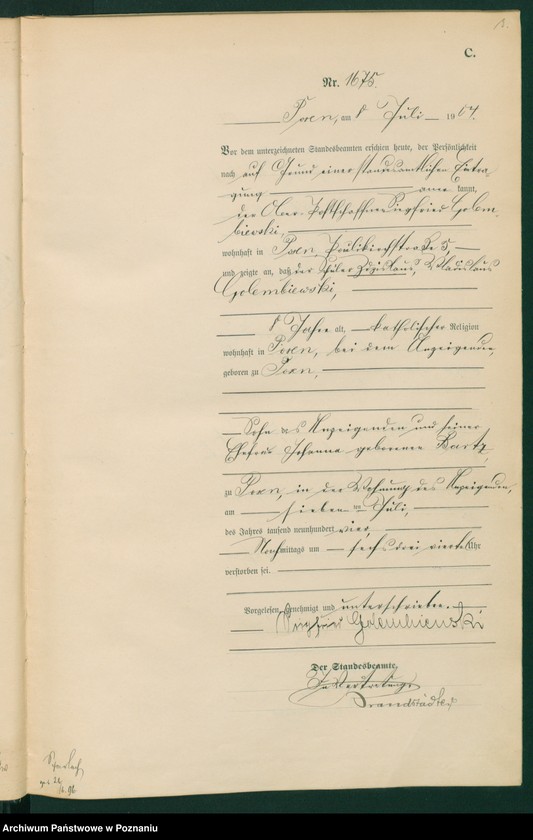 C.
Nr. 1675.
Posen, am 8 Juli 1904.
Vor dem unterzeichneten Standesbeamten erschien heute, der Persönlichkeit
nach auf Grund einer standesamtlichen Eintra-
gung aner kannt,
der Ober-Postschaffner Siegfried Golem-
biewski,
wohnhaft in Posen, Paulikirchstraße 5
und zeigte an, daß der Schüler Zdzislaus, Wladislaus
Golembiewski,
8 Jahre alt, katholischer Religion
wohnhaft in Posen, bei dem Anzeigenden,
geboren zu Posen,
Sohn des Anzeigenden und seiner
Ehefrau Johanna geborenen Bartz,
zu Posen, in der Wohnung des Anzeigenden,
am sieben ten Juli,
des Jahres tausend neunhundert vier,
Nachmittags um sechs drei viertel Uhr
verstorben sei.
Vorgelesen, genehmigt und unterschrieben.
Golembiewski
Der Standesbeamte.
In Vertretung
Brandstädter
Archiwum Państwowe w Poznaniu